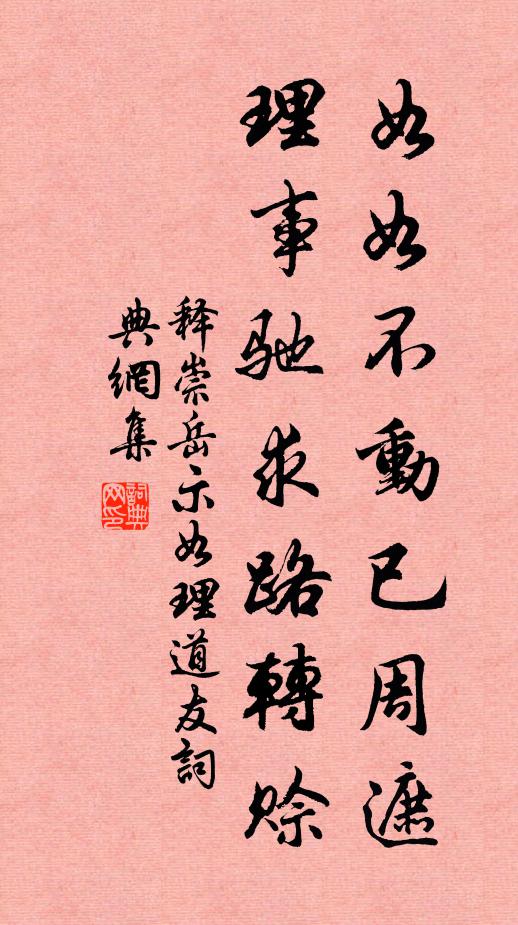 如如不動已周遮
理事馳求路轉賒
释崇岳示如理道友詞
典網集
詞典網印